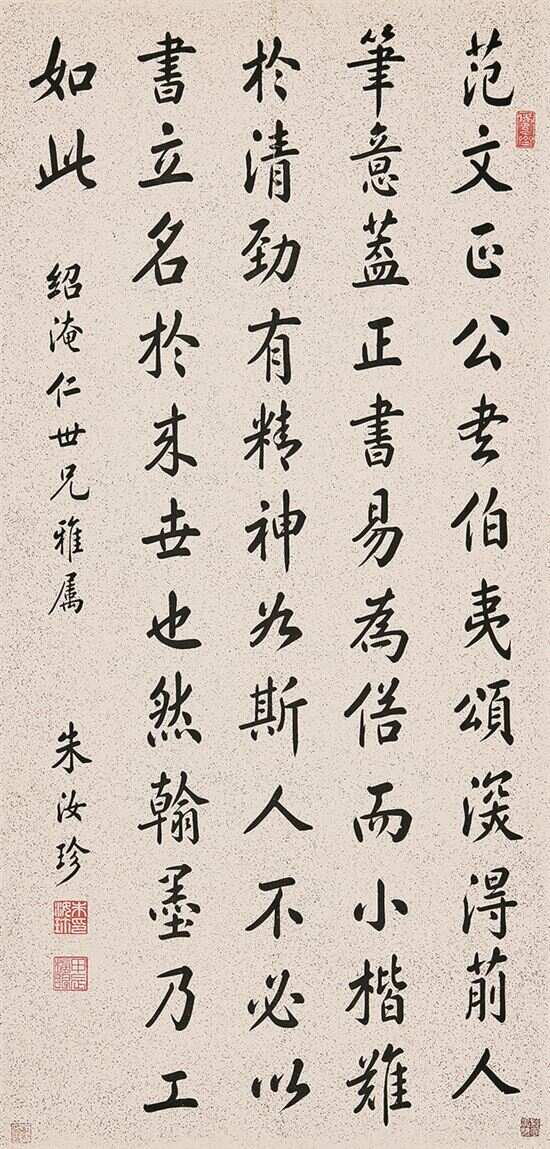 范文正公书伯夷頌深得前人
筆意蓋正書易為俗而小楷難
於清勁有精神如斯人不必以
書立名於来世也然翰墨乃工
如此
紹淹仁世兄雅属
朱汝珍